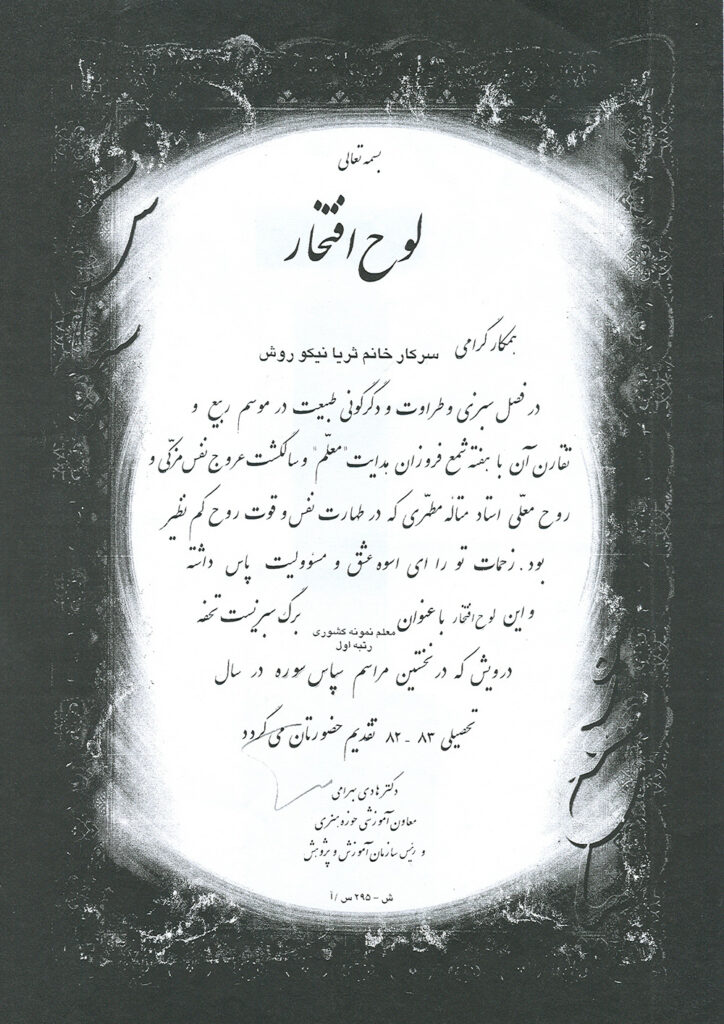 بسمه تعالی
لوح افتخار
همکار گرامی سرکار خانم ثریا نیکو روش
در فصل سبزی و طراوت و دگرگونی طبیعت در موسم ربیع و
تقارن آن با هفته شمع فروزان هدایت "معلّم" و سالگشت عروج نفس مزکّی و
روح معلّی استاد متالّه مطهّری که در طهارت نفس و قوت روح کم نظیر
بود. زحمات تو را ای اسوه عشق و مسؤولیت پاس داشته
و این لوح افتخار با عنوان معلم نمونه کشوری برگ سبزیست تحفه
رتبه اول
درویش که در نخستین مراسم سپاس سوره در سال
تحصیلی ۸۳ - ۸۲ تقدیم حضورتان می گردد
دکتر هادی بهرامی
معاون آموزشی حوزه هنری
و رئیس سازمان آموزش و پژوهش
ش - ۲۹۵ س / آ